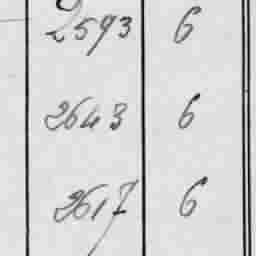 2593 6
2643 6
2617 6